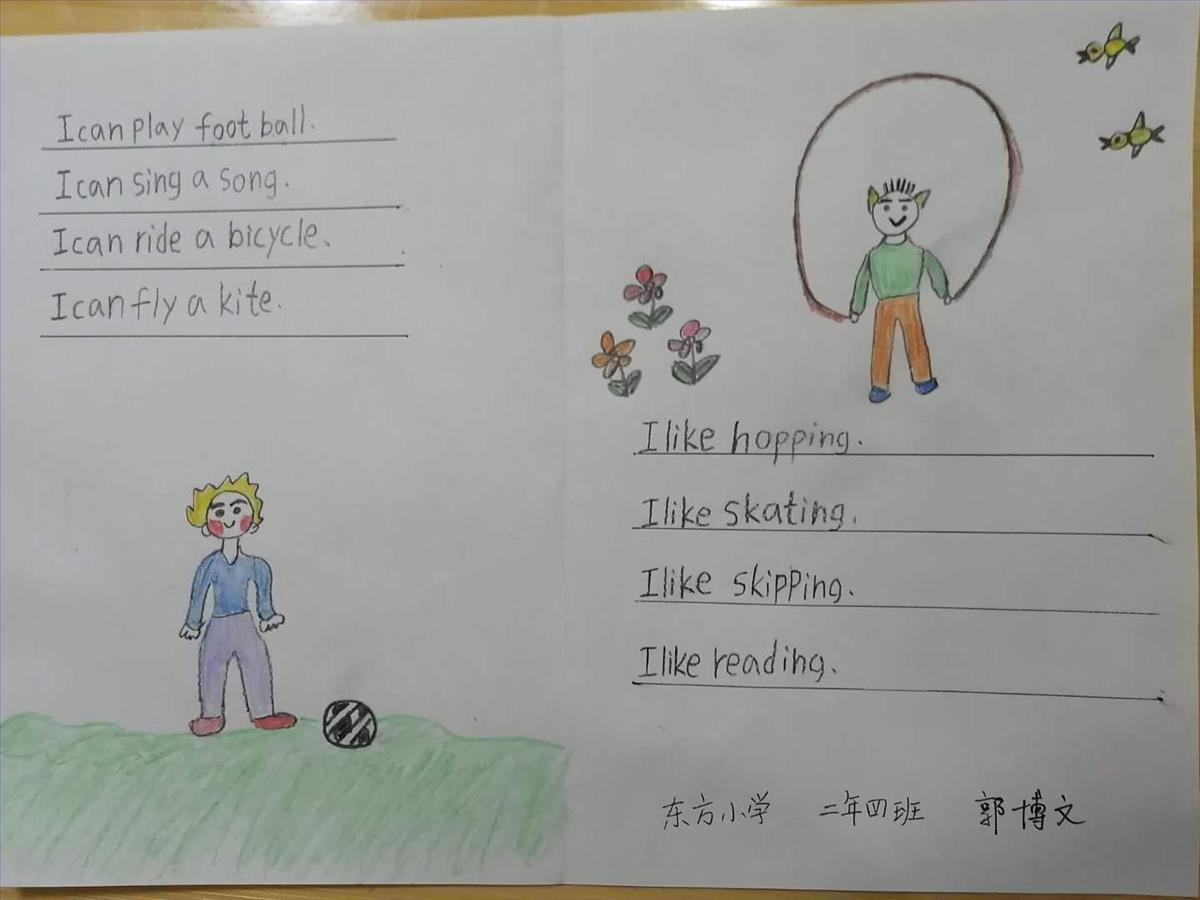 I can play foot ball.
I can sing a song.
I can ride a bicycle.
I can fly a kite.
I like hopping.
I like skating.
I like skipping.
I like reading.
东方小学 二年四班 郭博文